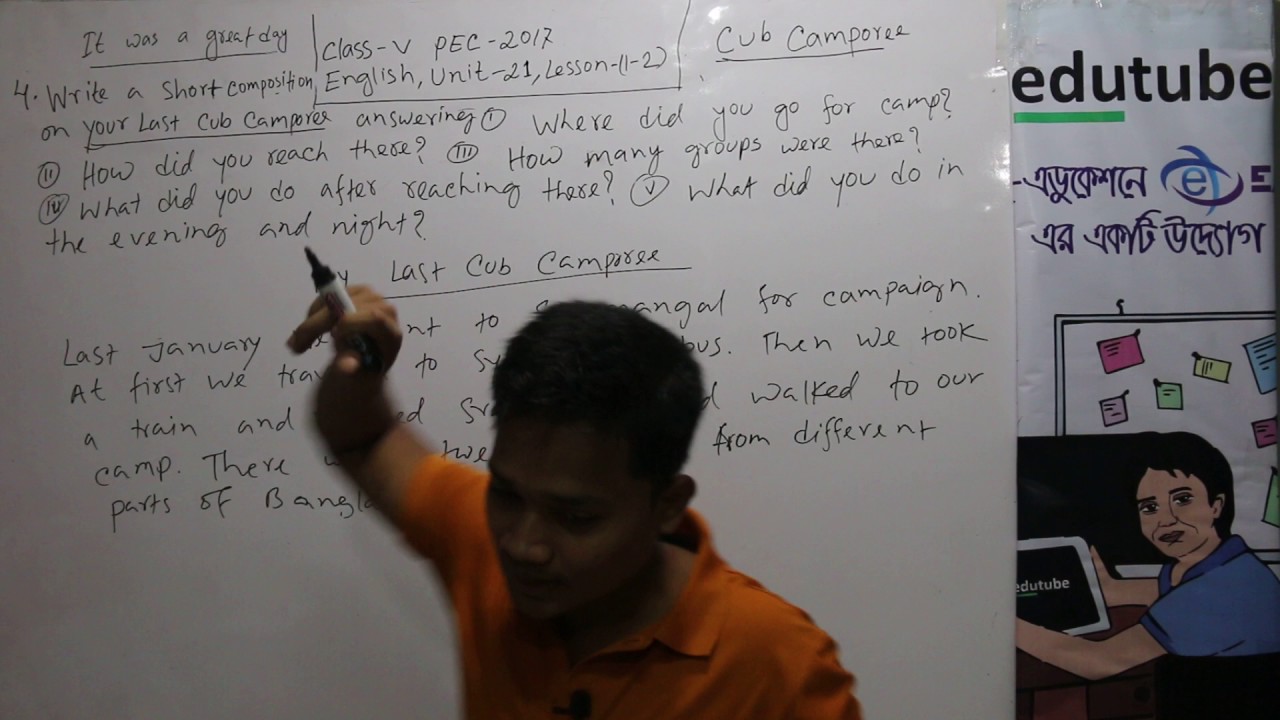 It was a great day
Class-V PEC-2017
Cub Camporee
English, Unit-21, Lesson-(1-2)
4. Write a short composition
on your Last Cub Camporee answering (i) Where did you go for camp?
(ii) How did you reach there? (iii) How many groups were there?
(iv) What did you do after reaching there? (v) What did you do in
the evening and night?
Last Cub Camporee
Last january to for campaign.
At first we to bus. Then we took
a train and walked to our
camp. There from different
parts of
edutube
এডুকেশনে
এর একটি উদ্যোগ
edutube